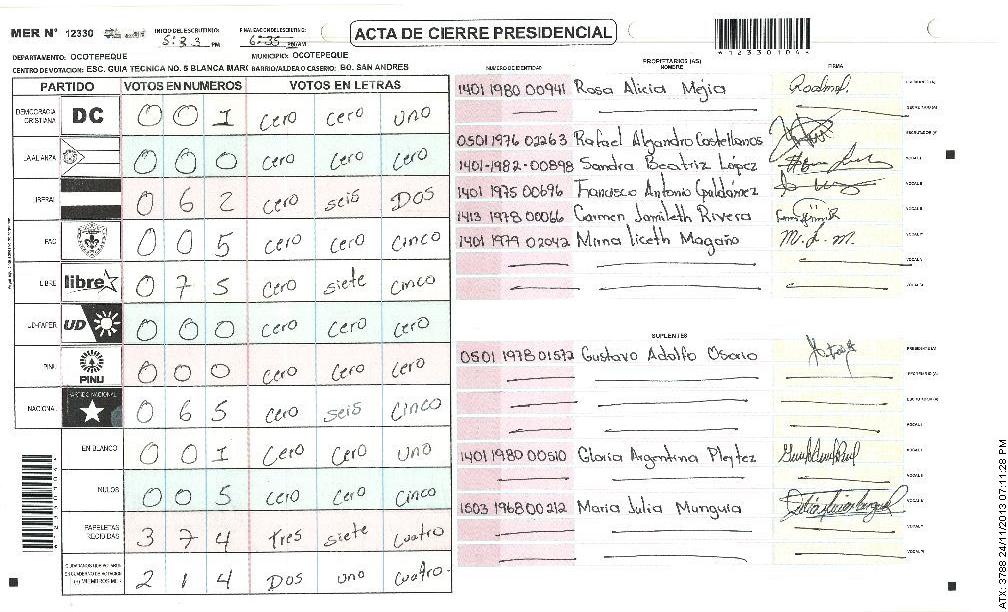 MER N° 12330
INICIO DEL ESCRUTINIO: 5:33 PM
FINALIZACION DEL ESCRUTINIO: 6:35 PM/AM
ACTA DE CIERRE PRESIDENCIAL
12330104
DEPARTAMENTO: OCOTEPEQUE MUNICIPIO: OCOTEPEQUE
CENTRO DE VOTACION: ESC. GUIA TECNICA NO. 5 BLANCA MARG BARRIO/ALDEA O CASERIO: BO. SAN ANDRES
PARTIDO VOTOS EN NUMEROS VOTOS EN LETRAS
DEMOCRACIA CRISTIANA DC 0 0 1 cero cero uno
LA ALIANZA 0 0 0 cero cero cero
LIBERAL 0 6 2 cero seis DOS
PAC 0 0 5 cero cero cinco
LIBRE libre 0 7 5 cero siete cinco
UD-FAPER UD 0 0 0 cero cero cero
PINU PINU 0 0 0 cero cero cero
NACIONAL PARTIDO NACIONAL 0 6 5 cero seis cinco
EN BLANCO 0 0 1 cero cero uno
NULOS 0 0 5 cero cero cinco
PAPELETAS RECIBIDAS 3 7 4 tres siete cuatro
2 1 4 DOS uno cuatro
PROPIETARIOS (AS)
NUMERO DE IDENTIDAD NOMBRE FIRMA
1401 1980 00941 Rosa Alicia Mejia
0501 1976 02263 Rafael Alejandro Castellanos
1401-1982-00898 Sandra Beatriz López
1401 1975 00696 Francisco Antonio Galdamez
1413 1978 00066 Carmen Jamileth Rivera
1401 1979 02042 Mirna Liceth Magaño M. L. M.
SUPLENTES
0501 1978 01572 Gustavo Adolfo Osorio
1401 1980 00510 Gloria Argentina Pleitez
1503 1968 00212 Maria Julia Munguia
ATX: 3788 24/11/2013 07:11:28 PM